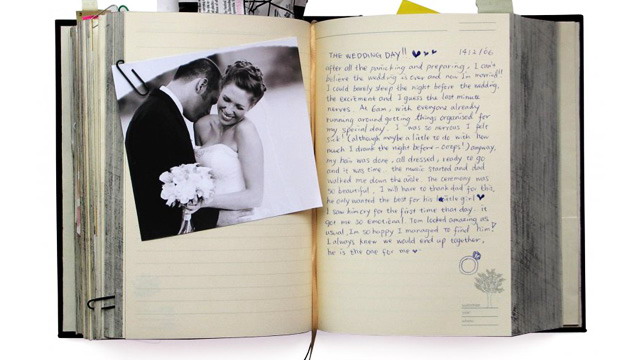 THE WEDDING DAY!! 14/2/06
after all the panicking and preparing, I can't
believe the wedding is over and now Im married!!
I could barely sleep the night before the wedding,
the excitment and I guess the last minute
nerves. At 6am, with everyone already
running around getting things organised for
my special day. I was so nervous I felt
sick! (although maybe a little to do with how
much I drank the night before - oops!) anyway,
my hair was done, all dressed, ready to go
and it was time. the music started and dad
walked me down the aisle. The ceremony was
so beautiful, I will have to thank dad for this,
he only wanted the best for his little girl
I saw for the first time that day. it
got me so emotional. Tom looked amazing as
usual, Im so happy I managed to find him!
I always knew we would end up together,
he is the one for me